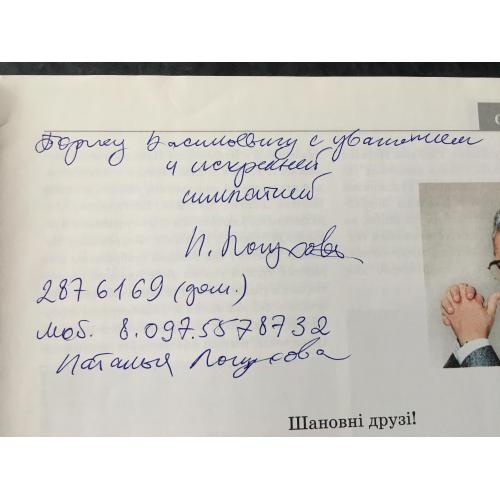 Борису Васильевичу с уважением
и искренней
симпатией
Н.
2876169 (дом.)
моб. 8.097.5578732
Наталья
Шановні друзі!